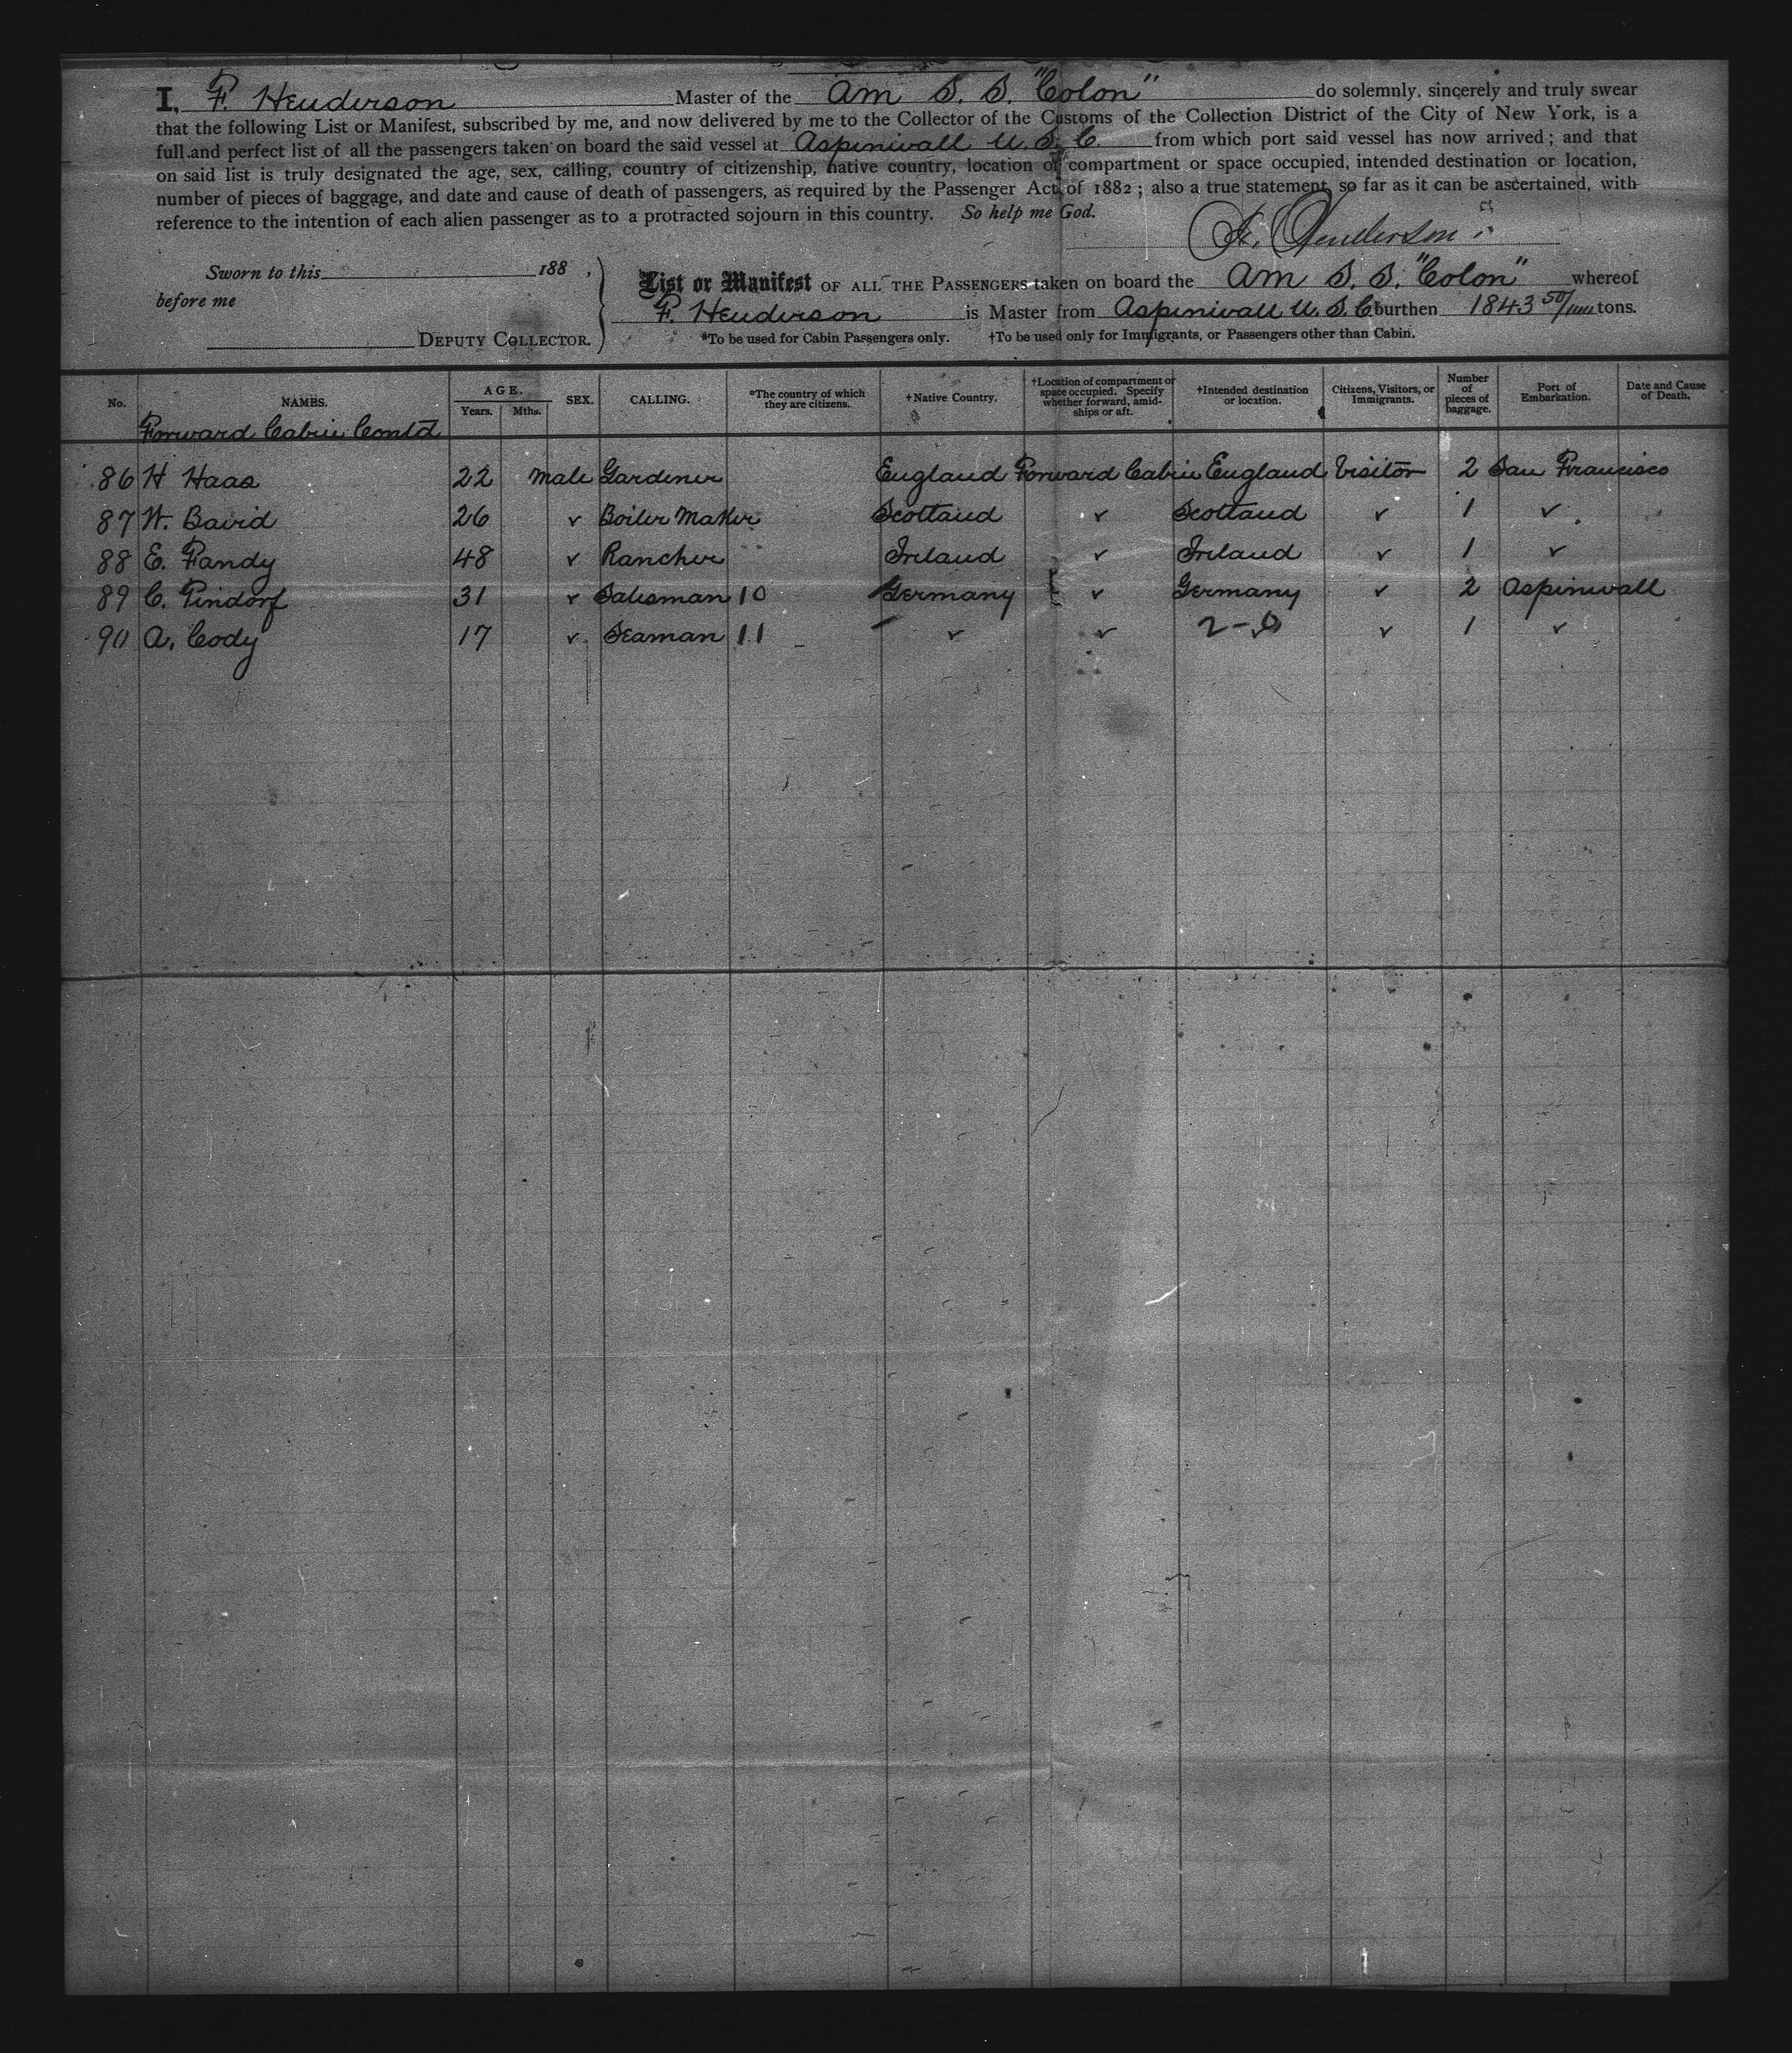 I, F. Henderson Master of the Am S. S. "Colon" do solemnly, sincerely and truly swear
that the following List or Manifest, subscribed by me, and now delivered by me to the Collector of the Customs of the Collection District of the City of New York, is a
full and perfect list of all the passengers taken on board the said vessel at Aspinwall U. S. C. from which port said vessel has now arrived; and that
on said list is truly designated the age, sex, calling, country of citizenship, native country, location of compartment or space occupied, intended destination or location,
number of pieces of baggage, and date and cause of death of passengers, as required by the Passenger Act of 1882; also a true statement, so far as it can be ascertained, with
reference to the intention of each alien passenger as to a protracted sojourn in this country. So help me God.
F. Henderson
Sworn to this 188 ,
before me
DEPUTY COLLECTOR.
List or Manifest OF ALL THE PASSENGERS taken on board the Am S. S. "Colon" whereof
F. Henderson is Master from Aspinwall U. S. C burthen 1843 50/ tons.
*To be used for Cabin Passengers only. †To be used only for Immigrants, or Passengers other than Cabin.
No. NAMES. AGE. Years. Mths. SEX. CALLING. *The country of which they are citizens. †Native Country. †Location of compartment or space occupied. Specify whether forward, amidships or aft. †Intended destination or location. Citizens, Visitors, or Immigrants. Number of pieces of baggage. Port of Embarkation. Date and Cause of Death.
Forward Cabin Contd
86 H Haas 22 Male Gardener England Forward Cabin England Visitor 2 San Francisco
87 W. Bavid 26 ✓ Boiler Maker Scotland ✓ Scotland ✓ 1 ✓
88 E. Fandy 48 ✓ Rancher Ireland ✓ Ireland ✓ 1 ✓
89 C. Pindorf 31 ✓ Salesman 10 Germany ✓ Germany ✓ 2 Aspinwall
90 A. Cody 17 ✓ Seaman 11 ✓ ✓ 2-0 ✓ 1 ✓